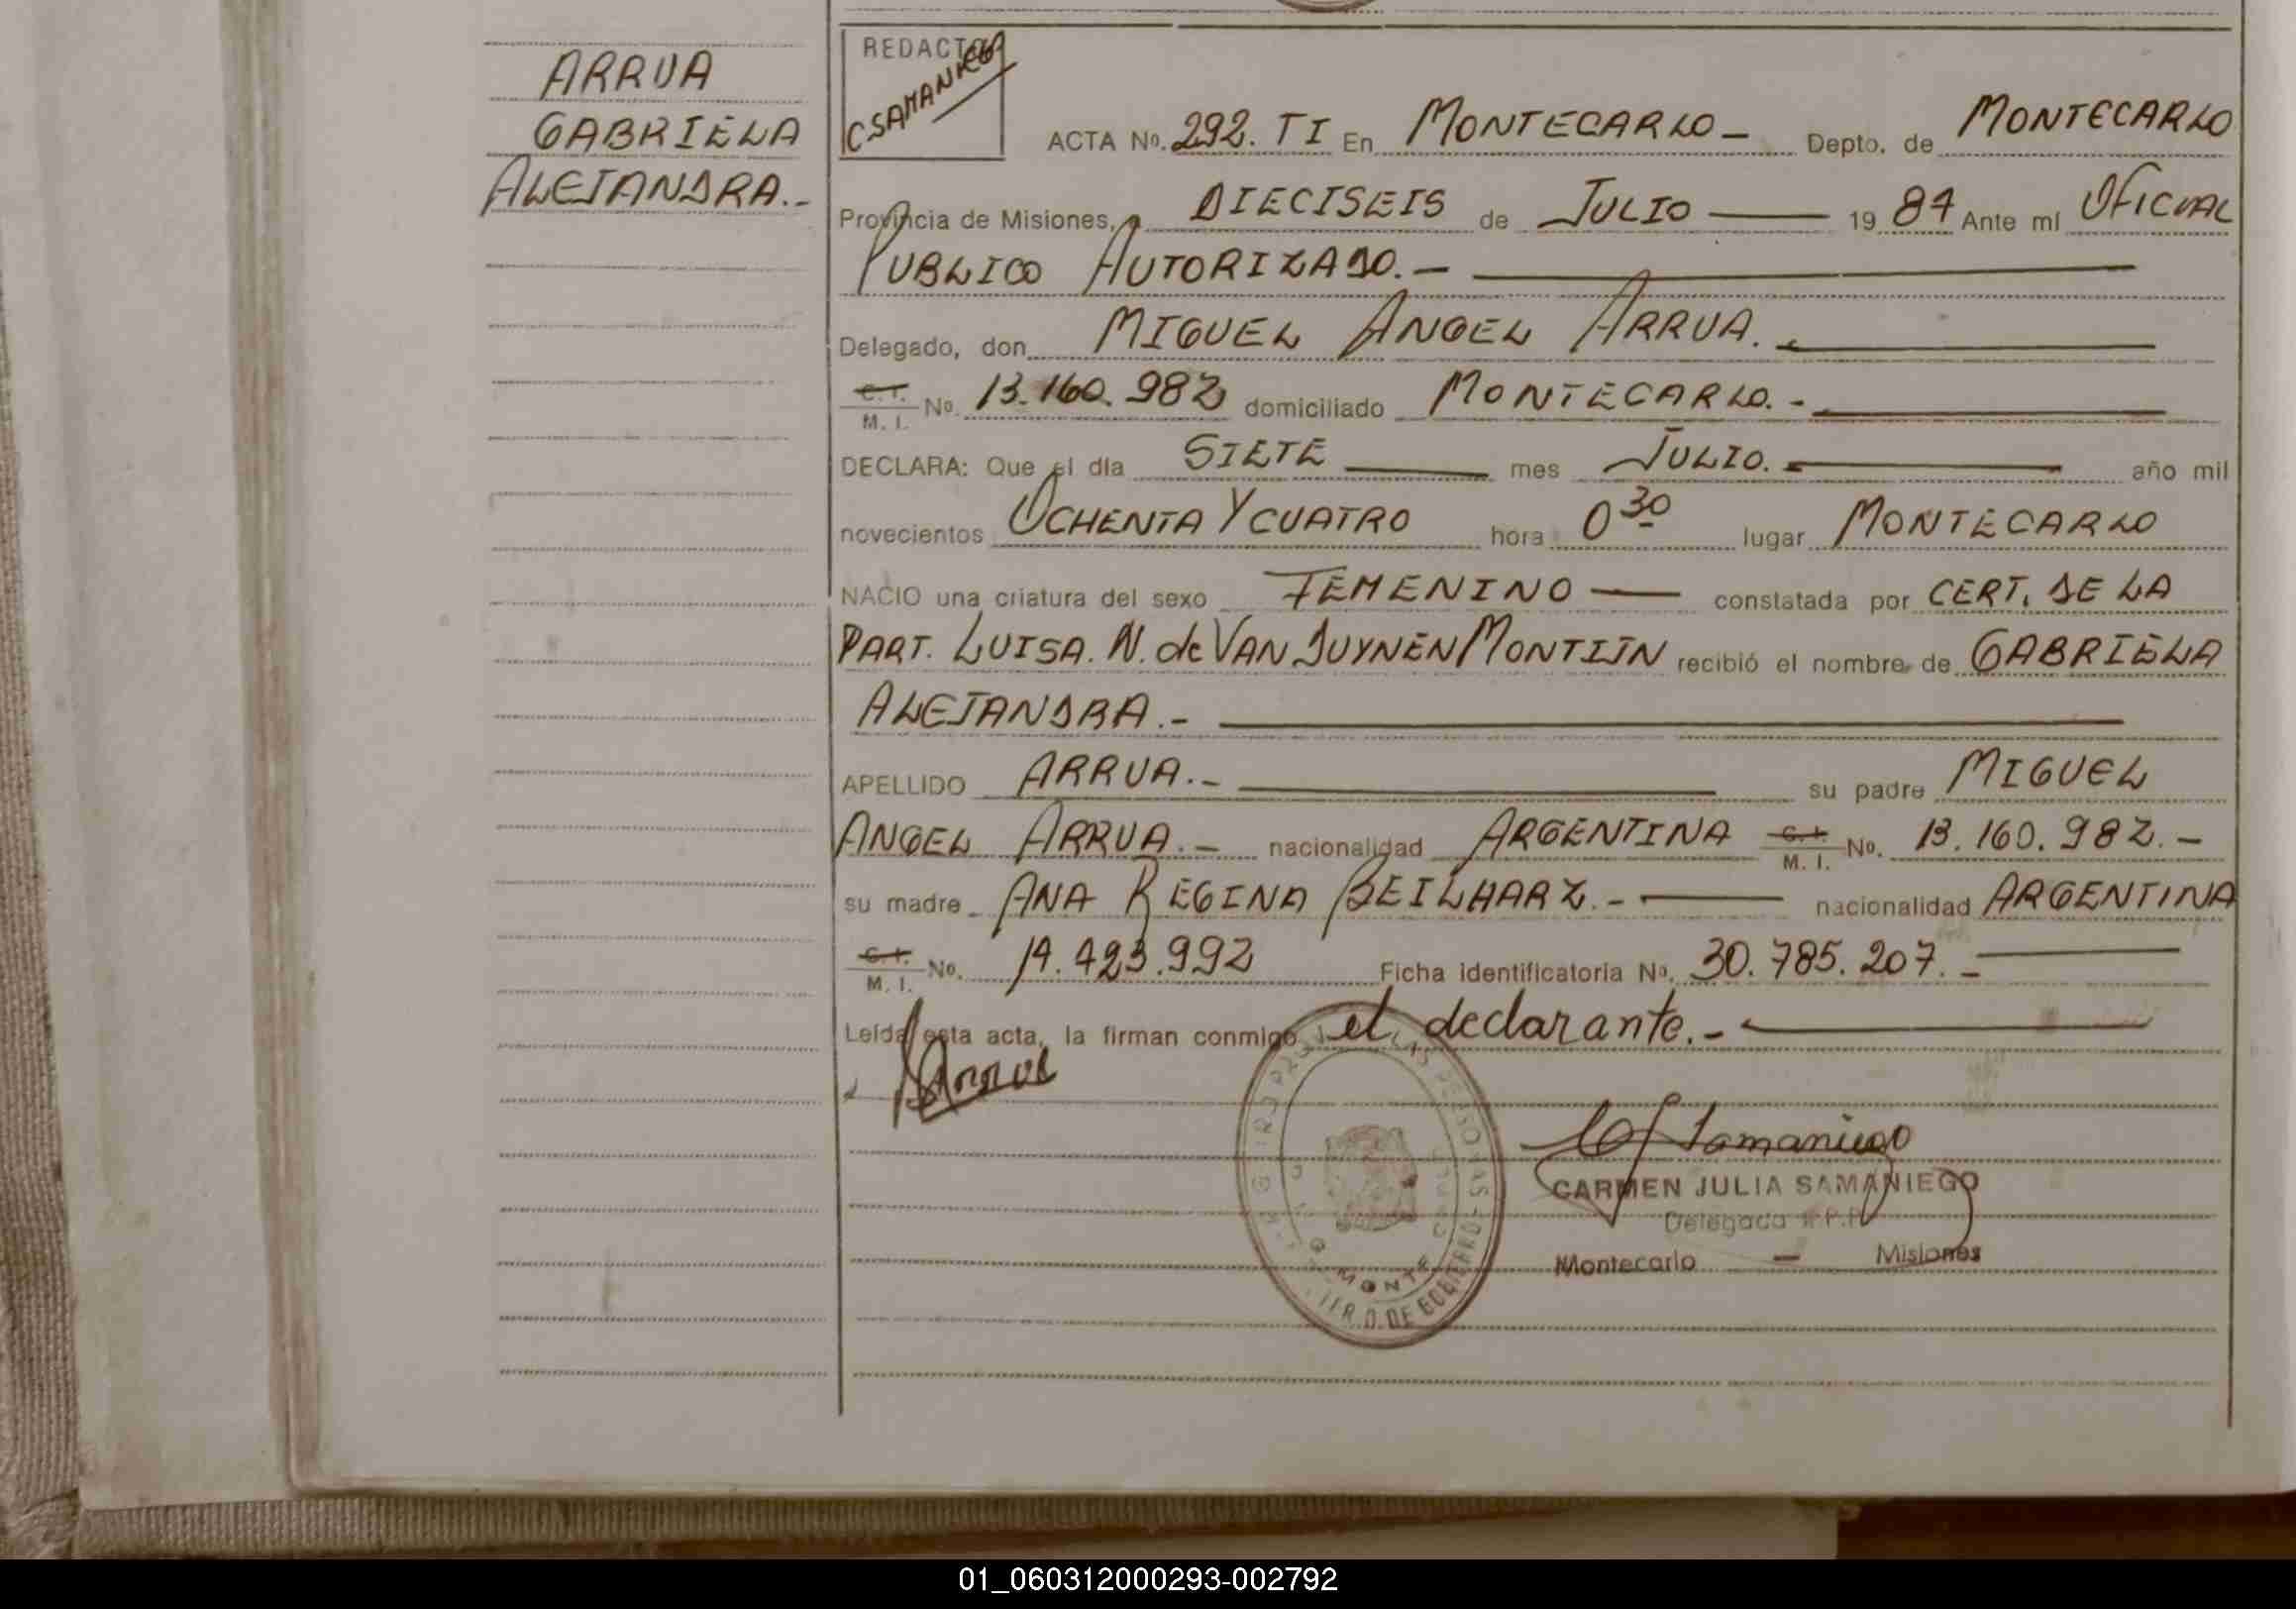 ARRUA
GABRIELA
ALEJANDRA.-
REDACTOR
C SAMANIEGO
ACTA Nº. 292. TI En MONTECARLO - Depto. de MONTECARLO
Provincia de Misiones, a DIECISEIS de JULIO — 19 84 Ante mí OFICIAL
PUBLICO AUTORIZADO. -
Delegado, don MIGUEL ANGEL ARRUA.
C. I. / M. I. Nº. 13.160.982 domiciliado MONTECARLO. -
DECLARA: Que el día SIETE mes JULIO. año mil
novecientos OCHENTA Y CUATRO hora 0 30 lugar MONTECARLO
NACIO una criatura del sexo FEMENINO — constatada por CERT. DE LA
PART. LUISA. N. de VAN DUYNEN MONTIJN recibió el nombre de GABRIELA
ALEJANDRA.-
APELLIDO ARRUA.- su padre MIGUEL
ANGEL ARRUA.- nacionalidad ARGENTINA C. I. / M. I. Nº. 13.160.982.-
su madre ANA REGINA BEILHARZ.- nacionalidad ARGENTINA
C. I. / M. I. Nº. 14.423.992 Ficha identificatoria Nº. 30.785.207.-
Leída esta acta, la firman conmigo el declarante.-
Arrua
CJ Samaniego
CARMEN JULIA SAMANIEGO
Delegada R.P.P.
Montecarlo - Misiones
01_060312000293-002792